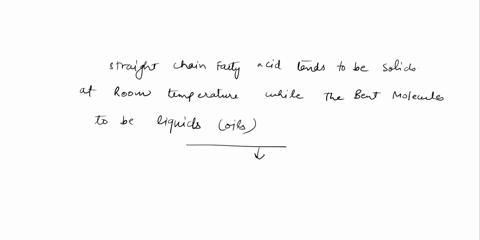 straight chain Fatty acid tends to be Solids
at Room temperature while The Bent Molecules
to be liquids (oils)